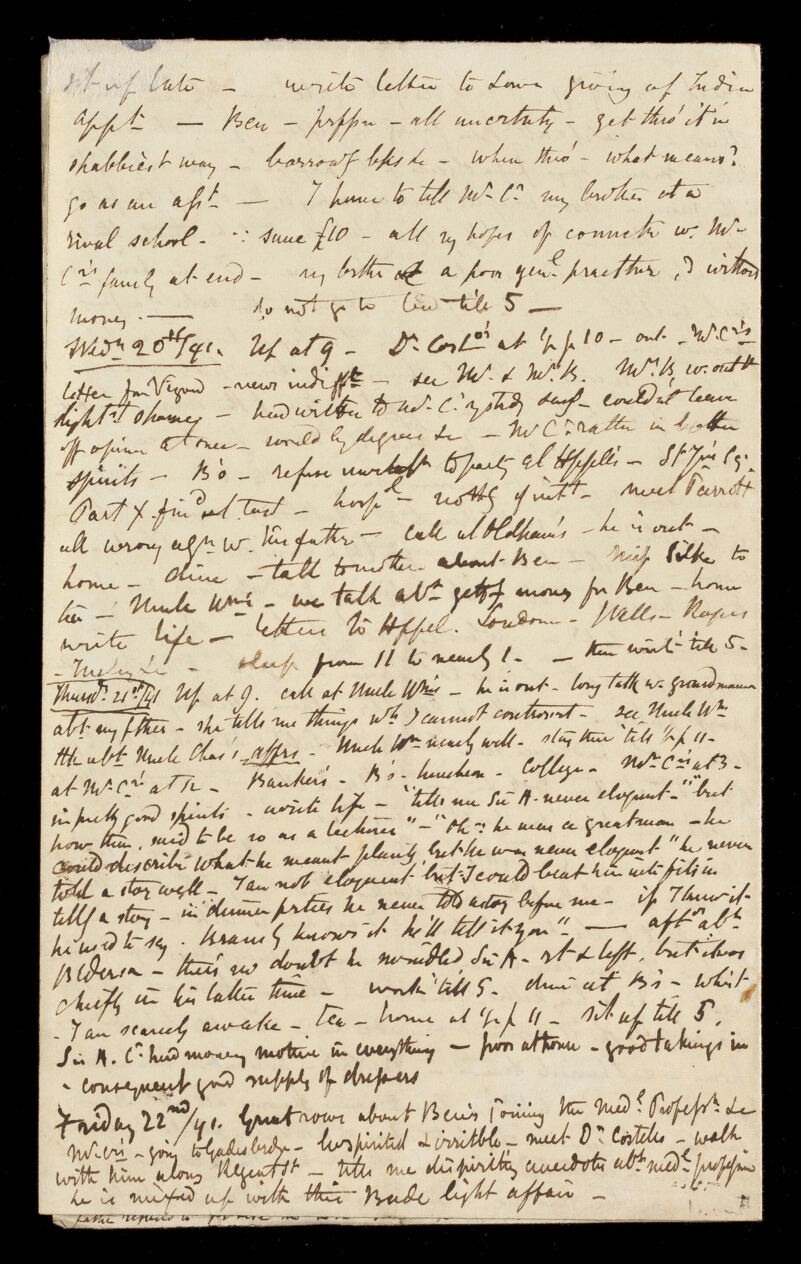 sit up late – write letter to Lowe giving up Indian
appt – Ben – proffn – all uncertnty – get thro' it in
shabbiest way – borrowg bks &c – when thro' – what means?
go as an asst – I have to tell Mr C. my brother at a
rival school – ∴ save £10 – all my hopes of connectn w. Mr
C's family at end – my brother a poor genl practitner, & without
money. — do not go to bed till 5 –
Wedn 20th/41. Up at 9 – Dr Costos at ½ p 10 – out – Mr C's
letter from – news indifft – see Mr & Mrs B. Mrs B w. out
slightst – had written to Mr C. self – couldn't leave
off opium at once – would by degrees &c – Mr C. rather in better
spirits – B's – refuse to party at – St Sq.
Part X find at last – hospl – nothg of intt – meet Parrott
all wrong agn w. his father – call at Oldham's – he is out –
home – dine – talk to mother about Ben – Miss Silke to
tea – Uncle Wm's – we talk abt gettg money for Ben – home
write life – letters to Hoppel. Loudon – Wells – Rogers
– &c – sleep from 11 to nearly 1. – then work till 5 –
Thursd. 21st/41 Up at 9. call at Uncle Wm's – he is out – long talk w. grandmama
abt my father – she tells me things wh I cannot controvert – see Uncle Wm
abt Uncle Chas's affrs – Uncle Wm nearly well – stay there till ½ p 11 –
at Mr C's at 12 – Bankers – B's – luncheon – College – Mr C's at 3 –
in pretty good spirits – write life – "tells me Sir A. never eloquent –" "but
how then, said to be so as a lecturer" – "Oh ∵ he was a great man – he
could describe what he meant plainly but he was never eloquent" "he never
told a story well – I am not eloquent but I could beat him into fits in
tellg a story – in dinner parties he never told a story before me – if I knew it
he used to say. Bransby knows it he'll tell it you" — abt
– there's no doubt he swindled Sir A. rt & left, but
chiefly in his latter time – work till 5. dine at B's – whist
– I am scarcely awake – tea – home at ½ p 11 – sit up till 5.
Sir A. C. had money motive in everything – poor at home – good takings in
– consequent good supply of dressers
Friday 22nd/41. Great rows about Ben's joining the Medl Professn &c
Mr C's – going to Gadesbridge – low spirited & irritble – meet Dr Costello – walk
with him along Regent St – tells me dispiriting anecdotes abt medl profession
he is mixed up with this Bude light affair –